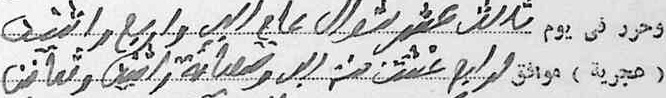 وحرر فى يوم ثالث عشر شوال عام الف واربع واثنين
( هجرية ) موافق لرابع غشت سنة الف وتسعمائة واثنين وثمانين